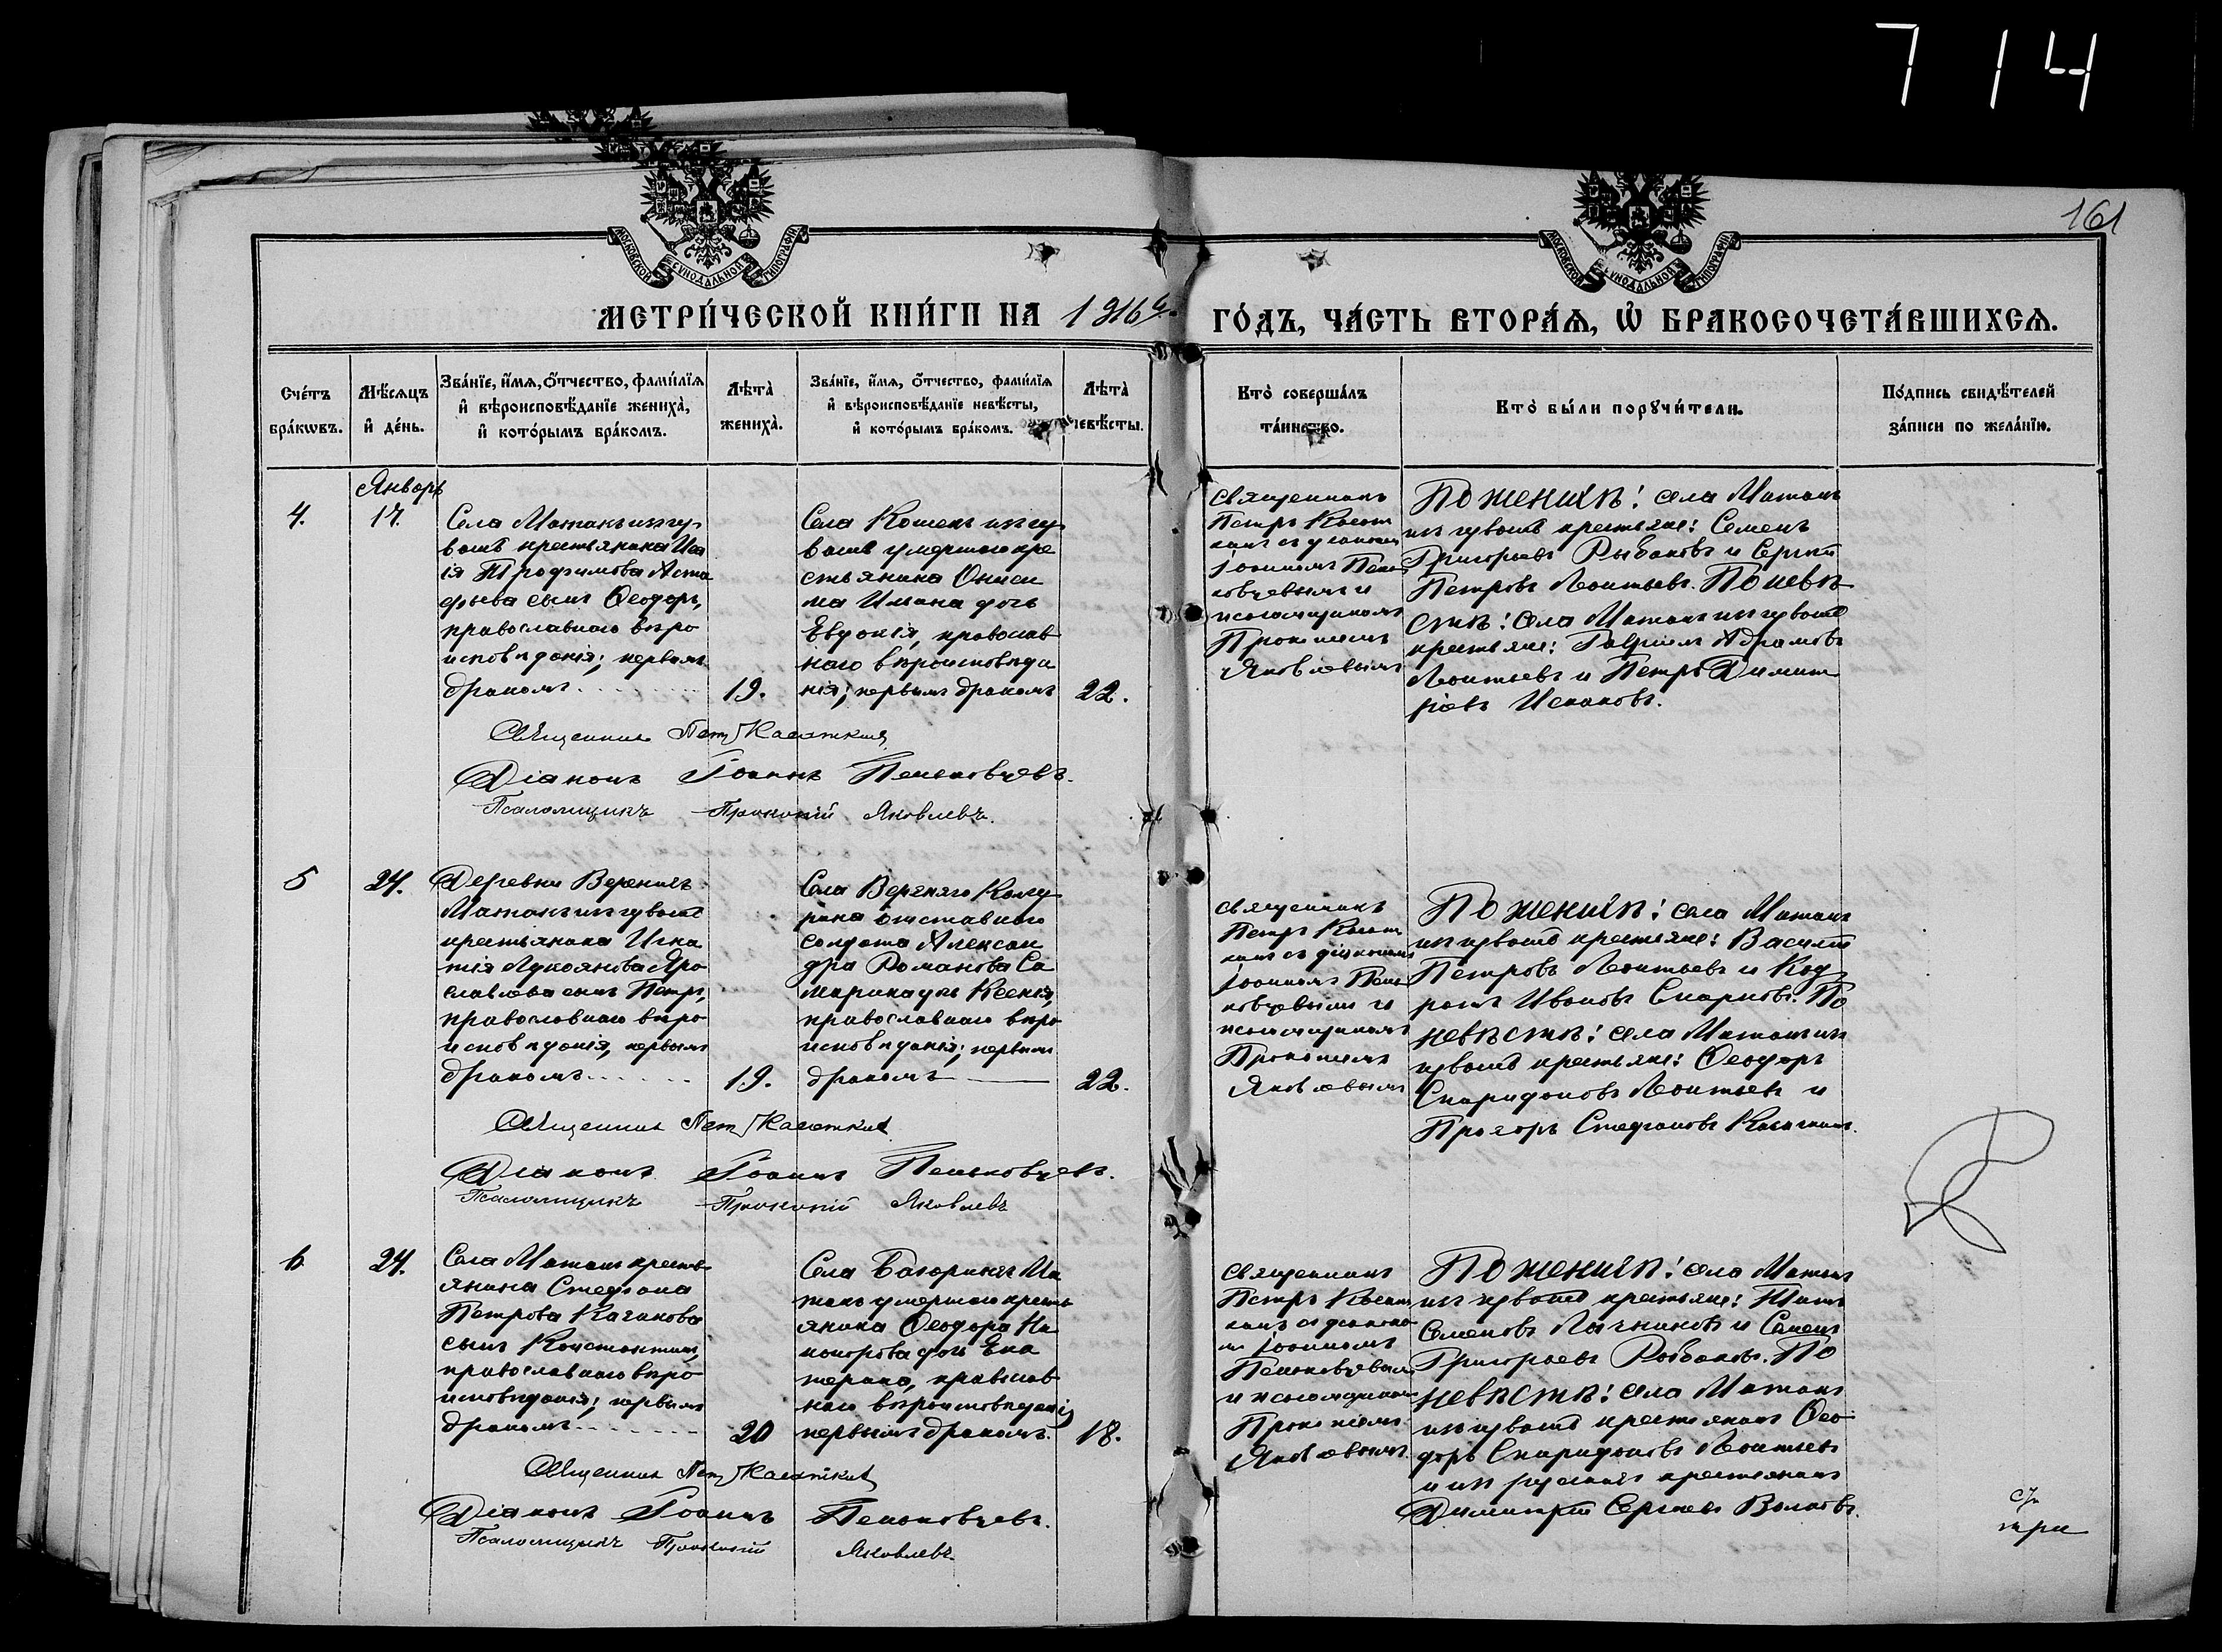 7 14
161
МОСКОВСКОЙ СУНОДАЛЬНОЙ ТИПОГРАФІИ
МОСКОВСКОЙ СУНОДАЛЬНОЙ ТИПОГРАФІИ
МЕТРИ́ЧЕСКОЙ КНИ́ГИ НА 1916 г. ГО́ДЪ, ЧА́СТЬ ВТОРА́Я, Ѡ БРАКОСОЧЕТА́ВШИХСЯ.
Сче́тъ
бра́кωвъ.
Мѣ́сяцъ
и де́нь.
Зва́нїе, и́мя, о́тчество, фами́лїя
и вѣроисповѣ́данїе жениха̀,
и кото́рымъ бра́комъ.
Лѣта̀
жениха̀.
Зва́нїе, и́мя, о́тчество, фами́лїя
и вѣроисповѣ́данїе невѣ́сты,
и кото́рымъ бра́комъ.
Лѣта̀
невѣ́сты.
Кто̀ соверша́лъ
та́инство.
Кто̀ бы́ли порꙋчи́тели.
По́дпись свидѣ́телей
за́писи по жела́нїю.
Январь
4.
17.
Села Матакъ изъ чу-
вашъ крестьянина Иса
ія Трофимова Аста
фьева сынъ Ѳеодоръ,
православнаго вѣро
исповѣданія; первымъ
бракомъ
19.
Села изъ чу
вашъ умершаго кре
стьянина Ониси
ма дочь
Евдокія, православ
наго вѣроисповѣда
нія; первымъ бракомъ
22.
Священникъ
Петръ Касат
кинъ съ діакономъ
Іоанномъ Пень
ковцевымъ и
псаломщикомъ
Прокопіемъ
Яковлевымъ
По женихѣ: села Матакъ
изъ чувашъ крестьяне: Семенъ
Григорьевъ Рыбаковъ и Сергѣй
Петровъ Леонтьевъ. По невѣ
стѣ: села Матакъ изъ чувашъ
крестьяне: Гавріилъ Абрамовъ
Леонтьевъ и Петръ Димит
ріевъ Исаковъ.
Священникъ Петръ Касаткинъ
Діаконъ Іоаннъ Пеньковцевъ.
Псаломщикъ Прокопій Яковлевъ.
5
24.
Деревни Верхнихъ
Матакъ изъ чувашъ
крестьянина Игна
тія Лукоянова Яро
славлева сынъ Петръ,
православнаго вѣро
исповѣданія, первымъ
бракомъ
19.
Села Верхняго Качу
отставного
солдата Алексан
дра Романова Са
марина дочь Ксенія,
православнаго вѣро
исповѣданія; первымъ
бракомъ
22.
Священникъ
Петръ Касат
кинъ съ діакономъ
Іоанномъ Пень
ковцевымъ и
псаломщикомъ
Прокопіемъ
Яковлевымъ
По женихѣ: села Матакъ
изъ чувашъ крестьяне: Василій
Петровъ Леонтьевъ и Код
ратъ Ивановъ По
невѣстѣ: села Матакъ изъ
чувашъ крестьяне: Ѳеодоръ
Спиридоновъ Леонтьевъ и
Прохоръ Стефановъ
Священникъ Петръ Касаткинъ
Діаконъ Іоаннъ Пеньковцевъ.
Псаломщикъ Прокопій Яковлевъ
6
24.
Села Матакъ кресть
янина Стефана
Петрова Качанова
сынъ Константинъ,
православнаго вѣро
исповѣданія; первымъ
бракомъ
20
Села Базарныхъ Ма
такъ умершаго кресть
янина Ѳеодора Ни
канорова дочь Ека
терина, православ
наго вѣроисповѣданія,
первымъ бракомъ.
18.
Священникъ
Петръ Касат
кинъ съ діаконо
мъ Іоанномъ
Пеньковцевымъ
и псаломщикомъ
Прокопіемъ
Яковлевымъ.
По женихѣ: села Матакъ
изъ чувашъ крестьяне: Титъ
Семеновъ и Семенъ
Григорьевъ Рыбаковъ. По
невѣстѣ: села Матакъ
изъ чувашъ крестьянинъ Ѳео
доръ Спиридоновъ Леонтьевъ
и изъ русскихъ крестьянинъ
Димитрій Сергѣевъ Волковъ.
Священникъ Петръ Касаткинъ
Діаконъ Іоаннъ Пеньковцевъ.
Псаломщикъ Прокопій Яковлевъ